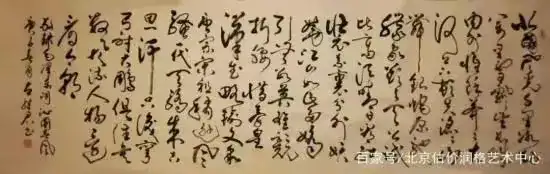 北国风光千里冰
封万里雪飘望长城
内外惟余莽莽大
河上下顿失滔滔山
舞银蛇原驰
蜡象欲与天公试
比高须晴日看红
装素裹分外妖
娆江山如此多娇
引无数英雄竞
折腰惜秦皇
汉武略输文采
唐宗宋祖稍逊风
骚一代天骄成吉
思汗只识弯
弓射大雕俱往矣
数风流人物还
看今朝
毛泽东词沁园春雪
百家号/北京估价润格艺术中心